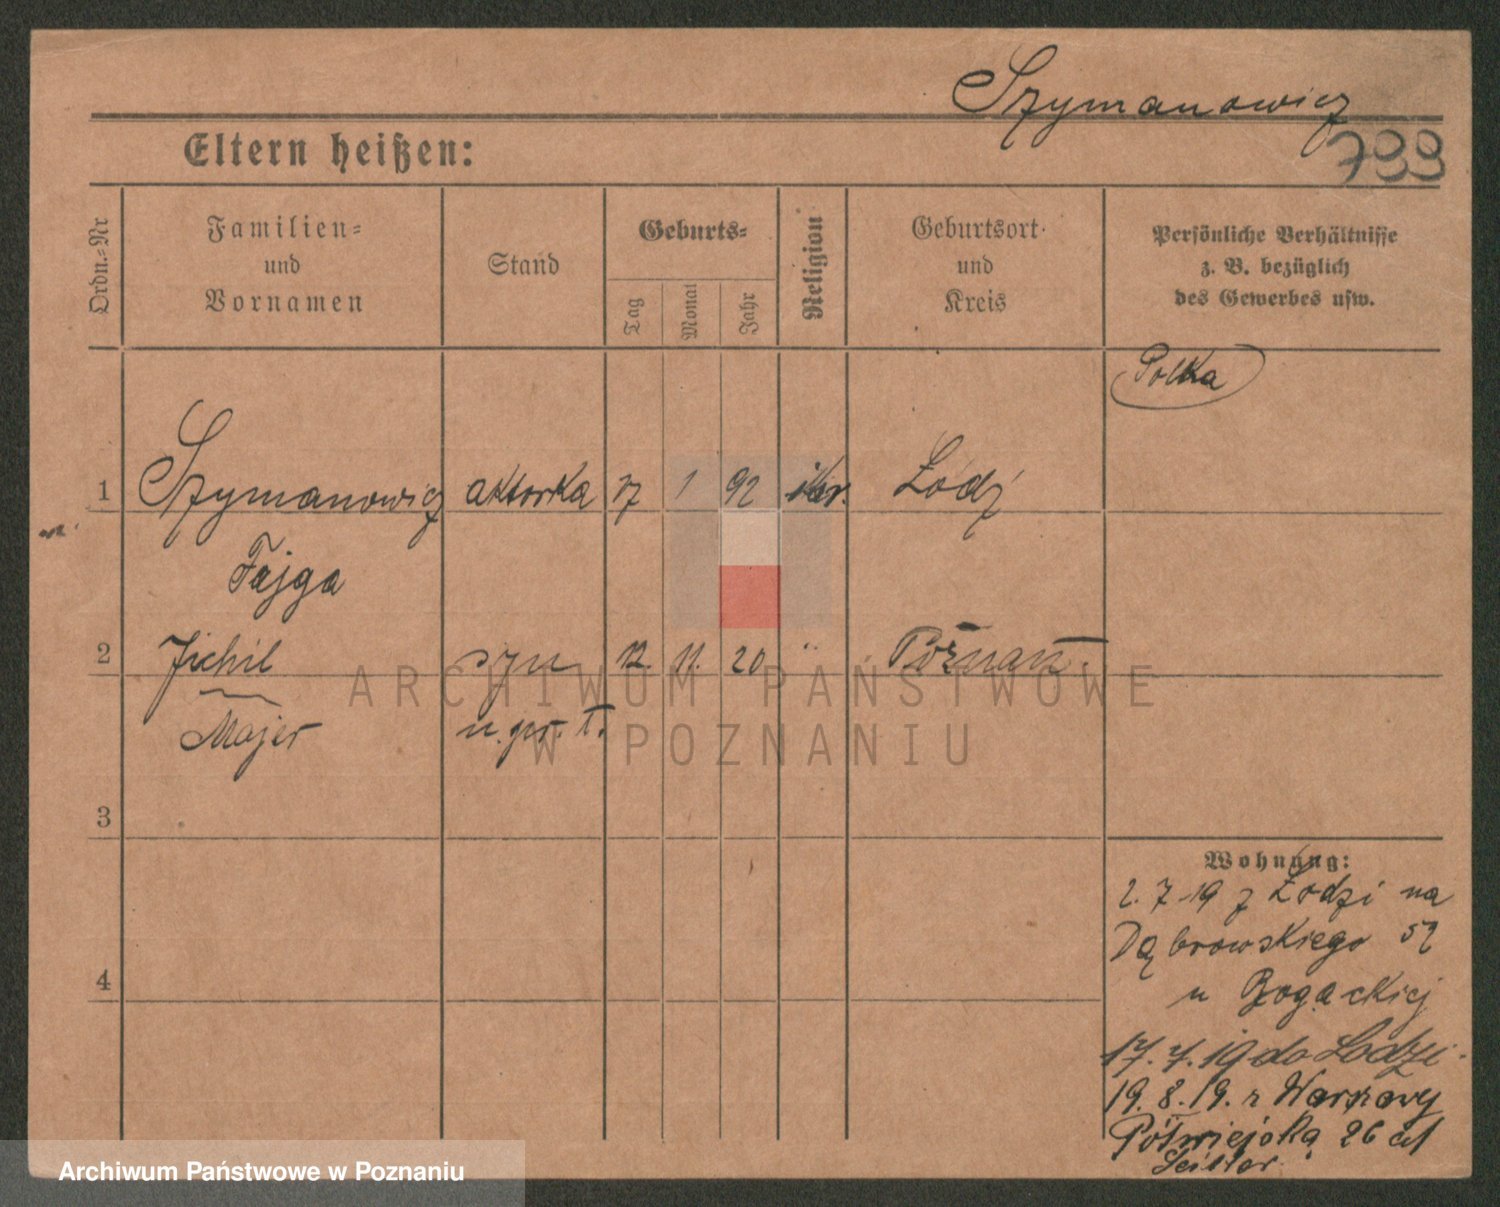 Szymanowicz
799
Eltern heißen:
Ordn.=Nr
Familien=
und
Vornamen
Stand
Geburts=
Tag
Monat
Jahr
Religion
Geburtsort
und
Kreis
Persönliche Verhältnisse
z. B. bezüglich
des Gewerbes usw.
Polka
1 Szymanowicz aktorka 17 1 92 Łódź
Fajga
2 Jichil syn 12. 11. 20 " Poznań.
Majer
3
4
Wohnung:
2.7.19 z Łodzi na
Dąbrowskiego
u Bogackiej
17.7.19 do Łodzi.
19.8.19. z Warszawy
Półwiejska 26
ARCHIWUM PAŃSTWOWE
W POZNANIU
Archiwum Państwowe w Poznaniu